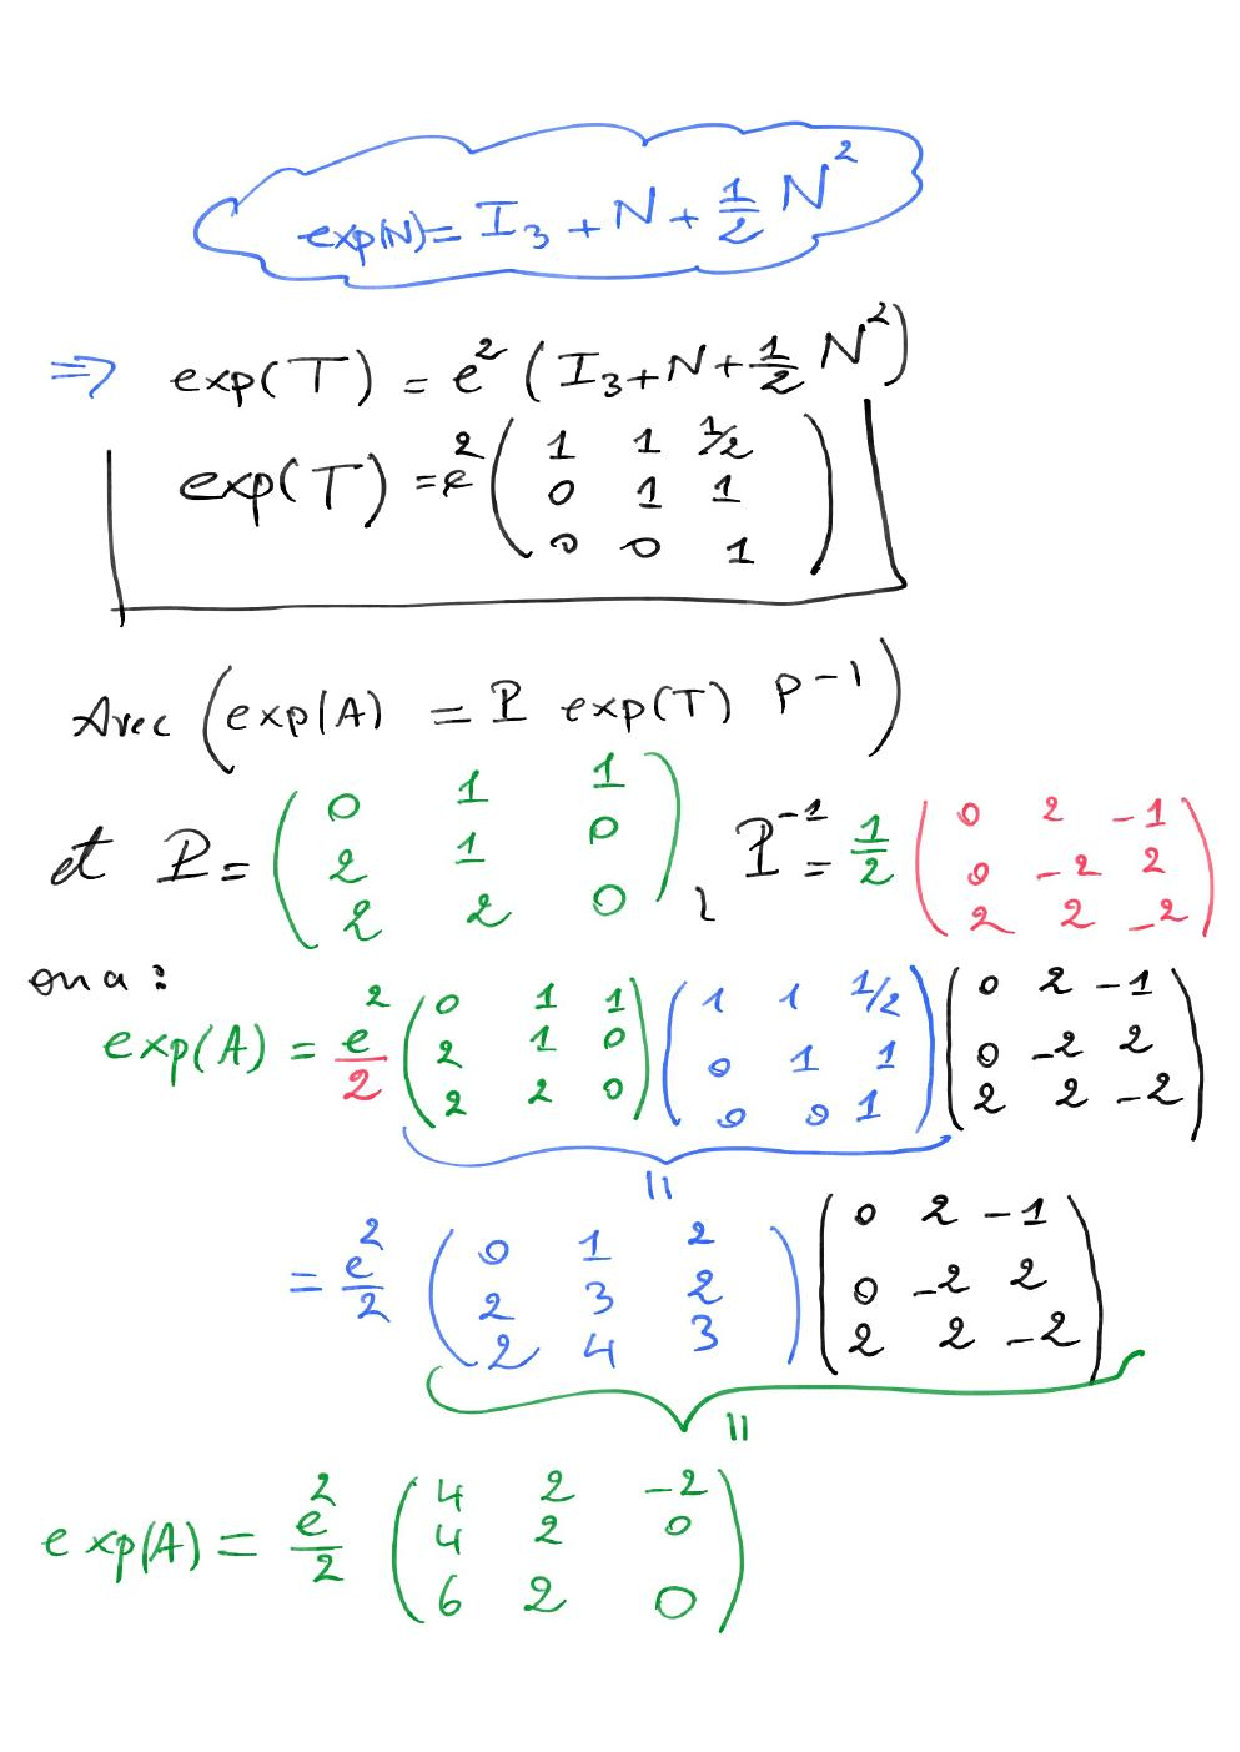 exp(N) = I₃ + N + 1/2 N²
⇒ exp(T) = e² (I₃ + N + 1/2 N²)
exp(T) = e² ( 1 1 1/2
0 1 1
0 0 1 )
Avec (exp(A) = P exp(T) P⁻¹)
et P = ( 0 1 1
2 1 0
2 2 0 ) , P⁻¹ = 1/2 ( 0 2 -1
0 -2 2
2 2 -2 )
on a :
exp(A) = e²/2 ( 0 1 1
2 1 0
2 2 0 ) ( 1 1 1/2
0 1 1
0 0 1 ) ( 0 2 -1
0 -2 2
2 2 -2 )
||
= e²/2 ( 0 1 2
2 3 2
2 4 3 ) ( 0 2 -1
0 -2 2
2 2 -2 )
||
exp(A) = e²/2 ( 4 2 -2
4 2 0
6 2 0 )